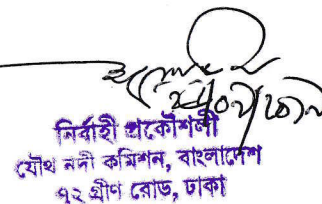 নির্বাহী প্রকৌশলী
যৌথ নদী কমিশন, বাংলাদেশ
৭২ গ্রীণ রোড, ঢাকা